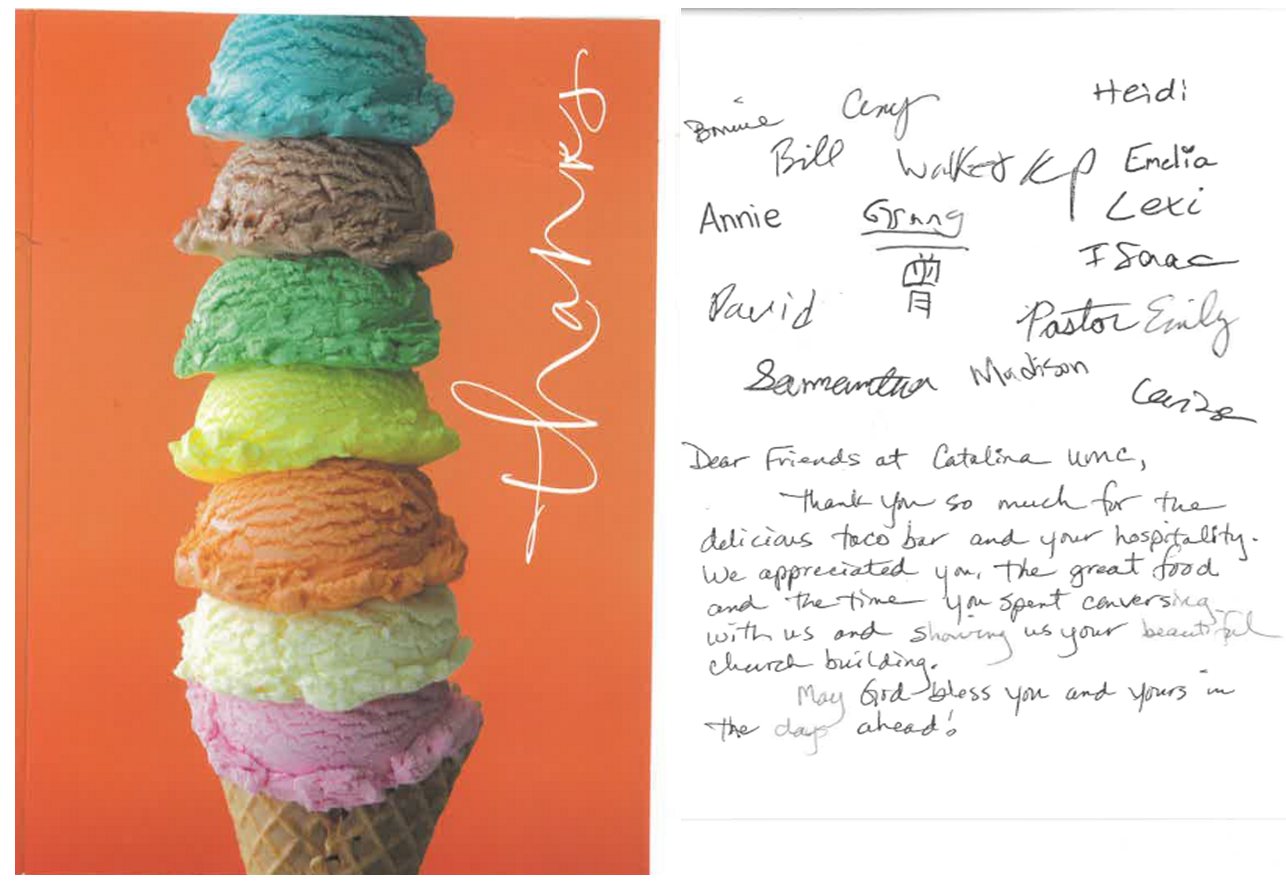 thanks
Bonnie
Heidi
Bill
Walker KP
Emelia
Annie
Lexi
Isaac
David
Pastor Emily
Samantha
Madison
Dear Friends at Catalina UMC,
Thank you so much for the
delicious taco bar and your hospitality.
We appreciated you, the great food
and the time you spent conversing
with us and showing us your beautiful
church building.
May God bless you and yours in
the days ahead!